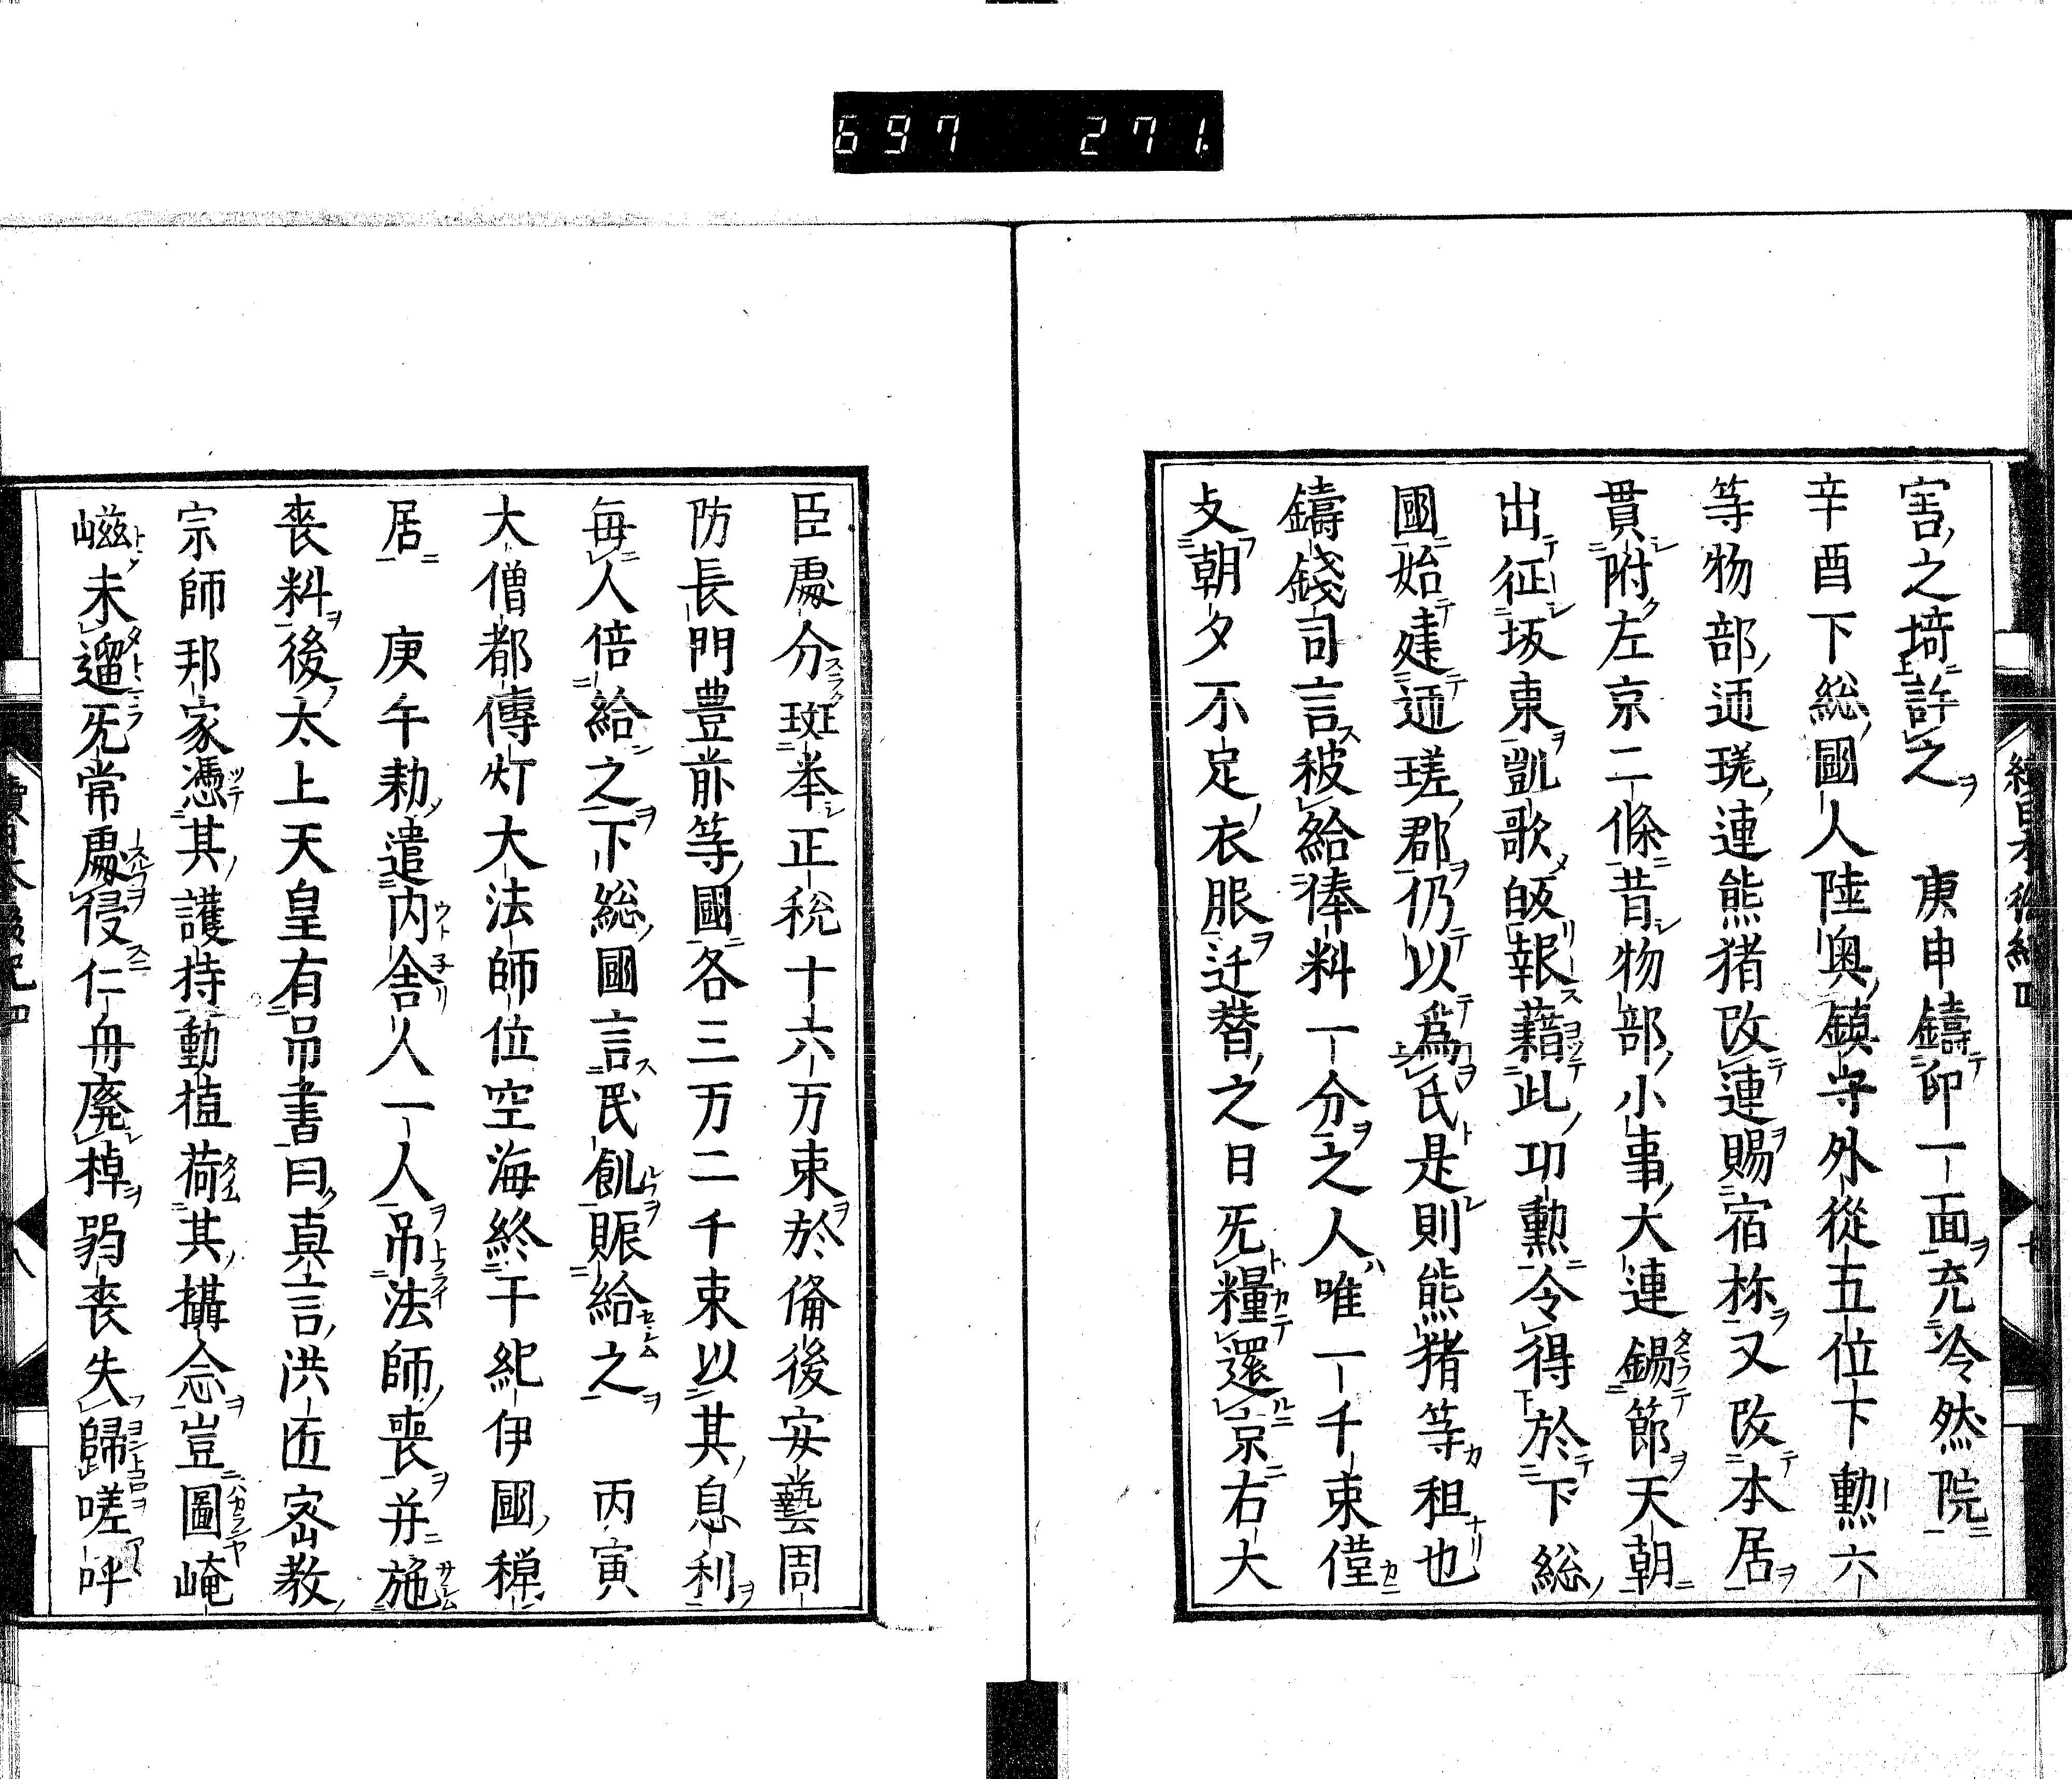 697 271.
害之埼許之 庚申鑄印一面充冷然院
辛酉下総國人陸奥鎮守外從五位下勲六
等物部迊瑳連熊猪改連賜宿祢又改本居
貫附左京二條昔物部小事大連錫節天朝
出征坂東凱歌皈報藉此功勲令得於下総
國始建迊瑳郡仍以爲氏是則熊猪等祖也
鑄錢司言被給俸料一分之人唯一千束僅
支朝夕不定衣服迁替之日旡糧還京右大
臣處分班挙正税十六万束於俻後安藝周
防長門豊前等國各三万二千束以其息利
毎人倍給之下総國言民飢賑給之 丙寅
大僧都傳灯大法師位空海終于紀伊國禅
居 庚午勅遣内舎人一人吊法師喪并施
喪料後太上天皇有吊書曰真言洪匠密教
宗師邦家憑其護持動植荷其攝念豈圖崦
嵫未遥旡常處侵仁舟廃棹弱喪失歸嗟呼